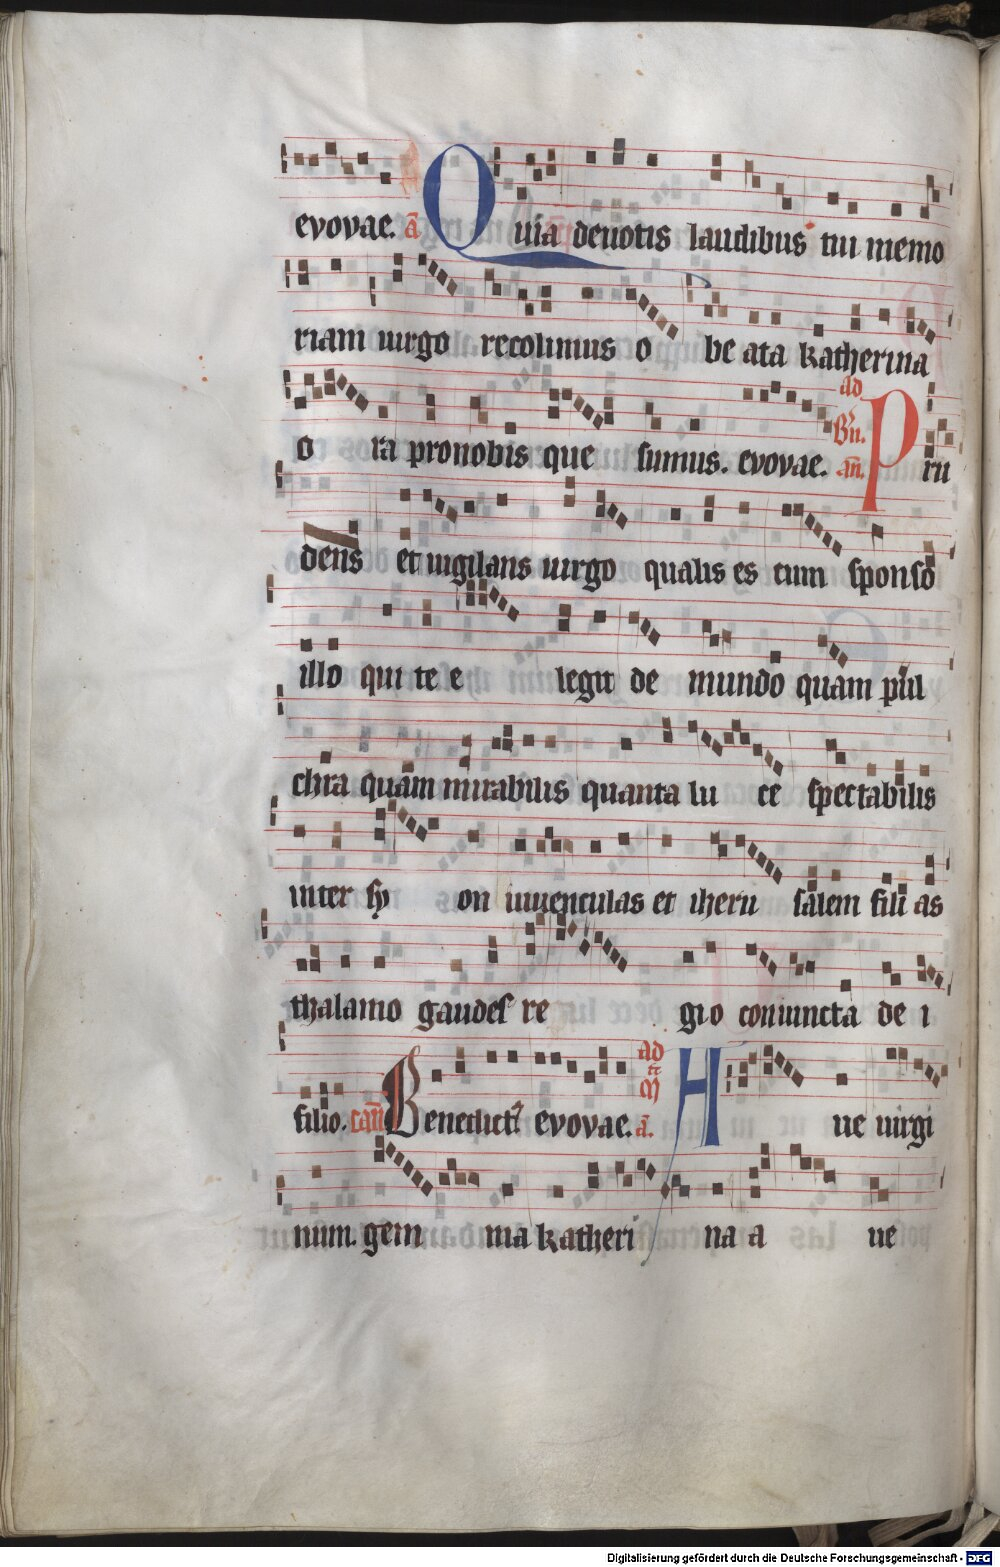 evovae. a Quia deuotis laudibus tui memo
riam uirgo recolimus o be ata katherina
o ra pro nobis que sumus. evovae. ad Bn. an. Pru
dens et uigilans uirgo qualis es cum sponso
illo qui te e legit de mundo quam pul
chra quam mirabilis quanta lu ce spectabilis
inter sy on iuuenculas et iheru salem filias
thalamo gaudes re gio coniuncta de i
filio. Benedict evovae. ad M a. Aue uirgi
num gem ma katheri na a ue
Digitalisierung gefördert durch die Deutsche Forschungsgemeinschaft - DFG